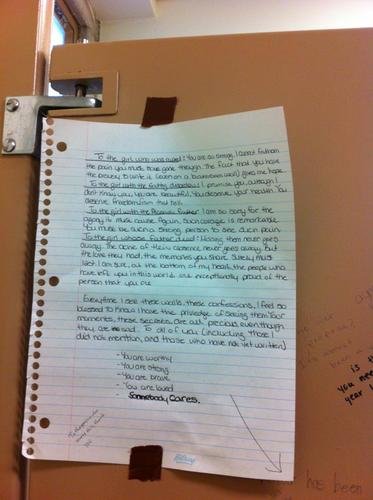 To the girl who was raped: You are so strong. I cannot fathom
the pain you must have gone through. The fact that you have
the bravery to write it (even on a bathroom wall) gives me hope.
To the girl with the eating disorder: I promise you, although I
don't know you, you are beautiful. You deserve your health. You
deserve freedom from that hell.
To the girl with the Father: I am so sorry for the
agony his must cause. Again, such courage is remarkable.
You must be such a strong person to see such pain.
To the girl whose father died: Missing them never goes
away. The ache of their absence never goes away, but
the love they had, the memories you share, surely must
last. I am sure, at the bottom of my heart, the people who
have left you in this world are exceptionally proud of the
person that you are.
Everytime I see these walls, these confessions, I feel so
blessed to know I have the priviledge of seeing them. Your
moments, these secrets are all precious even though
they are sad. To all of you (including those I
did not mention, and those who have not yet written)
- You are worthy
- You are strong
- You are brave
- You are loved
- Somebody Cares.
Hilroy
is th
you nee
year l
has been